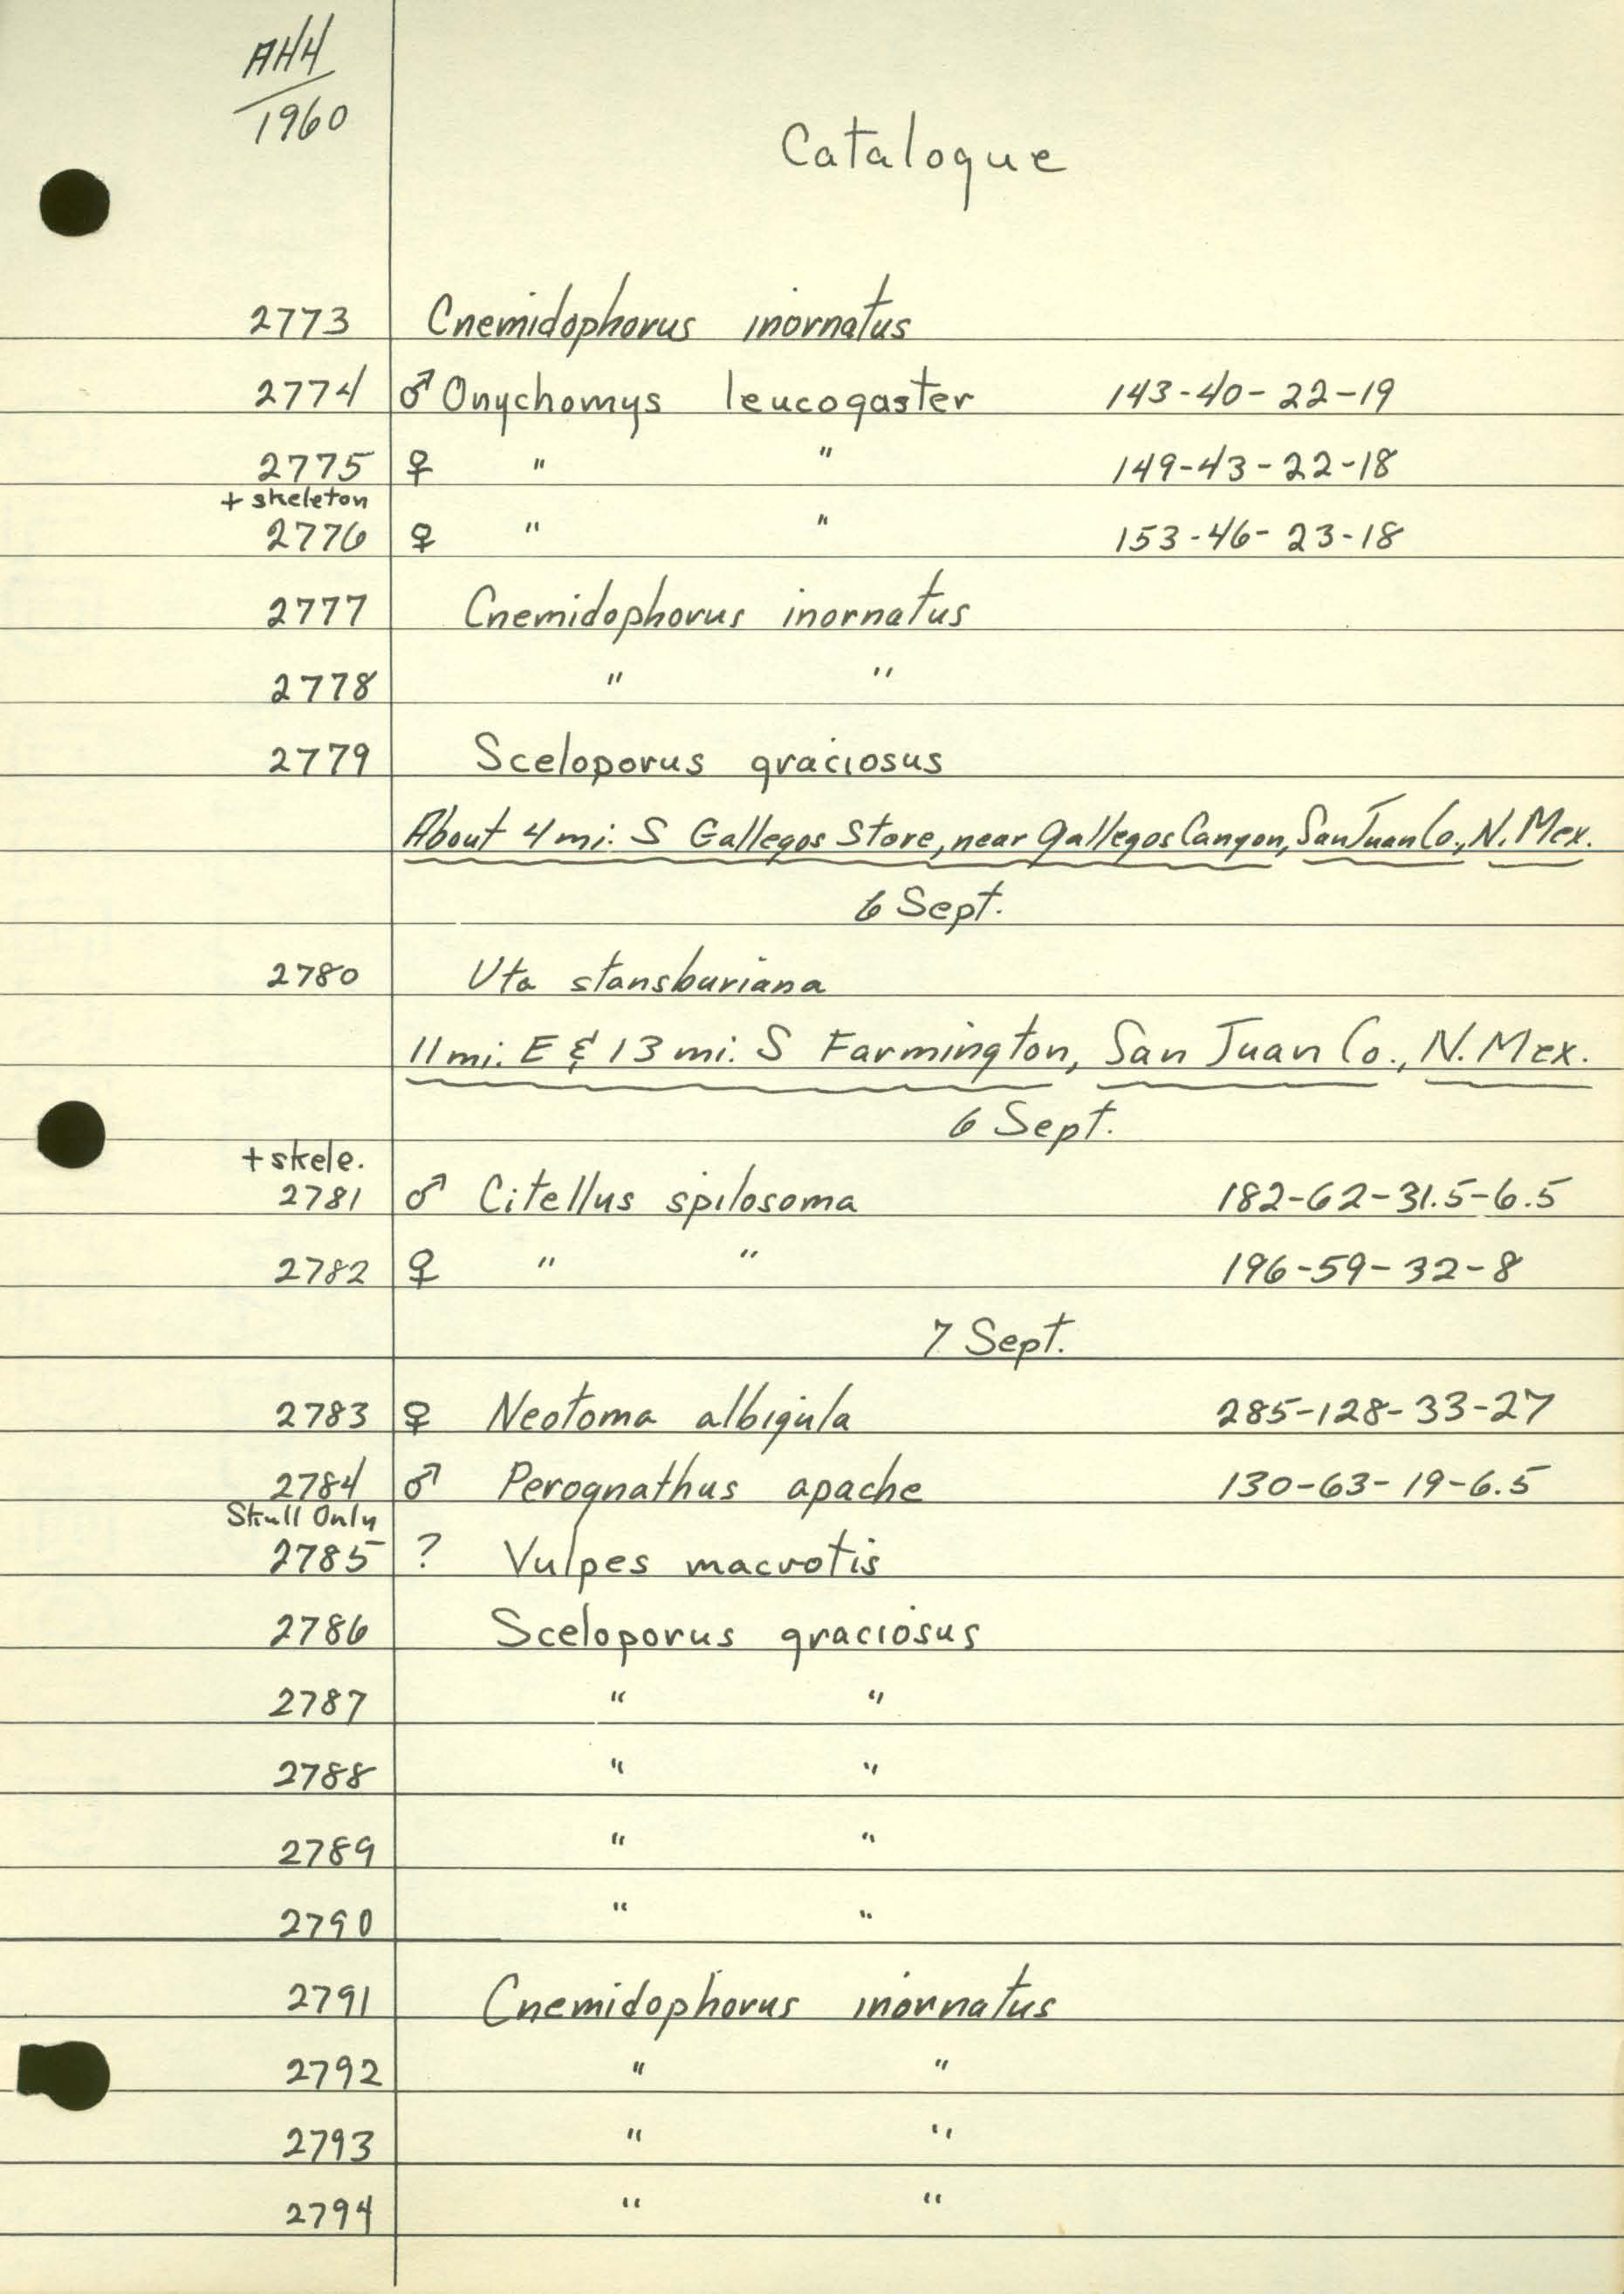 AHH
1960
Catalogue
2773 Cnemidophorus inornatus
2774 ♂ Onychomys leucogaster 143-40-22-19
2775 ♀ " " 149-43-22-18
+ skeleton
2776 ♀ " " 153-46-23-18
2777 Cnemidophorus inornatus
2778 " "
2779 Sceloporus graciosus
About 4 mi. S Gallegos Store, near Gallegos Canyon, San Juan Co., N. Mex.
6 Sept.
2780 Uta stansburiana
11 mi. E & 13 mi. S Farmington, San Juan Co., N. Mex.
6 Sept.
+ skele.
2781 ♂ Citellus spilosoma 182-62-31.5-6.5
2782 ♀ " " 196-59-32-8
7 Sept.
2783 ♀ Neotoma albigula 285-128-33-27
2784 ♂ Perognathus apache 130-63-19-6.5
Skull Only
2785 ? Vulpes macrotis
2786 Sceloporus graciosus
2787 " "
2788 " "
2789 " "
2790 " "
2791 Cnemidophorus inornatus
2792 " "
2793 " "
2794 " "